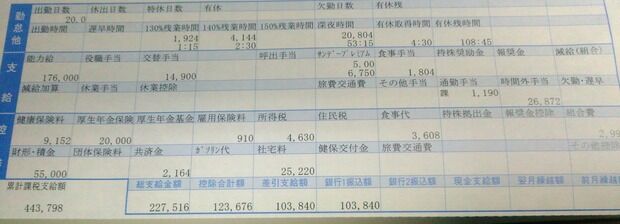 勤怠他
出勤日数 休出日数 特休日数 有休 欠勤日数 有休残
20.0
出勤時間 遅早時間 130%残業時間 140%残業時間 150%残業時間 深夜時間 有休取得時間 有休残時間
1,924 4,144 20,804
1:15 2:30 53:15 4:30 108:45
支給
能力給 役職手当 交替手当 呼出手当 サンデープレミアム 食事手当 持株奨励金 報奨金 減給(組合)
5.00
176,000 14,900 6,750 1,804
減給加算 休業手当 休業控除 旅費交通費 その他手当 通勤手当 時間外手当 欠勤・遅早
課 1,190
26,872
控
健康保険料 厚生年金保険 厚生年金基金 雇用保険料 所得税 住民税 食事代 持株拠出金 報奨金控除 組合費
9,152 20,000 910 4,630 3,608 2,99
財形・積金 団体保険料 共済金 ガソリン代 社宅料 健保交付金 旅費交通費 その他控除
55,000 2,164 25,220
累計課税支給額 総支給金額 控除合計額 差引支給額 銀行1振込額 銀行2振込額 現金支給額 翌月繰越額 前月繰越
443,798 227,516 123,676 103,840 103,840